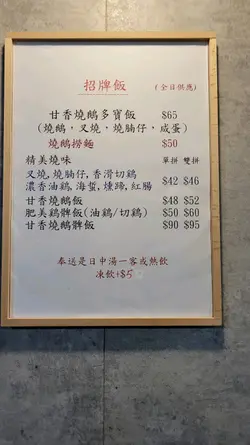 招牌飯 (全日供應)
甘香燒鵝多寶飯 $65
(燒鵝,叉燒,燒腩仔,咸蛋)
燒鵝撈麵 $50
精美燒味 單拼 雙拼
叉燒,燒腩仔,香滑切鷄
濃香油鷄,海蜇,燻蹄,紅腸 $42 $46
甘香燒鵝飯 $48 $52
肥美鷄髀飯(油鷄/切鷄) $50 $60
甘香燒鵝髀飯 $90 $95
奉送是日中湯一客或熱飲
凍飲+$5